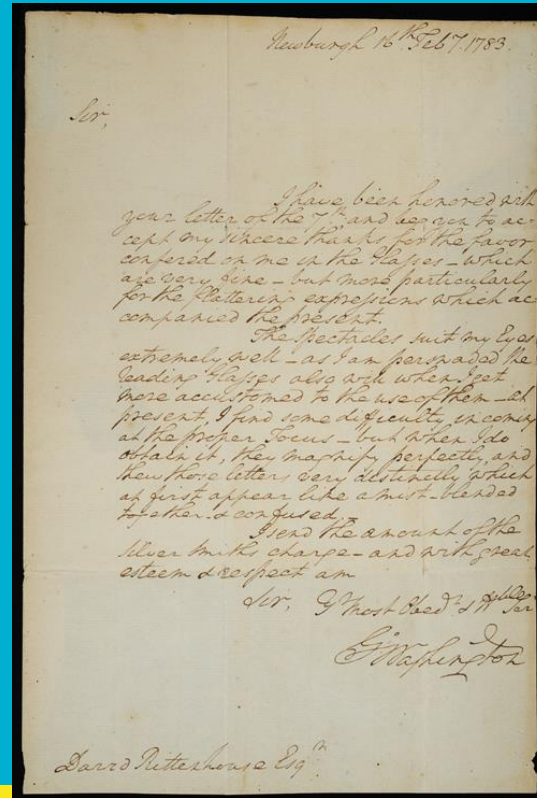 Newburgh 16th Feby. 1783.
Sir,
I have been honored with
your letter of the 7th and beg you to ac-
cept my sincere thanks for the favor
confered on me in the Glasses – which
are very fine – but more particularly
for the flattering expressions which ac
companied the present.
The Spectacles suit my Eyes
extremely well – as I am perswaded the
reading Glasses also will when I get
more accustomed to the use of them – at
present, I find some difficulty in coming
at the proper Focus – but when I do
obtain it, they magnify perfectly, and
shew those letters very distinctly which
at first appear like a mist – blended
together & confused. –
I send the amount of the
Silver Smiths charge – and with great
esteem & respect am
Sir, Yr. Most Obedt. & Hble Ser
Go Washington
David Rittenhouse Esqr.